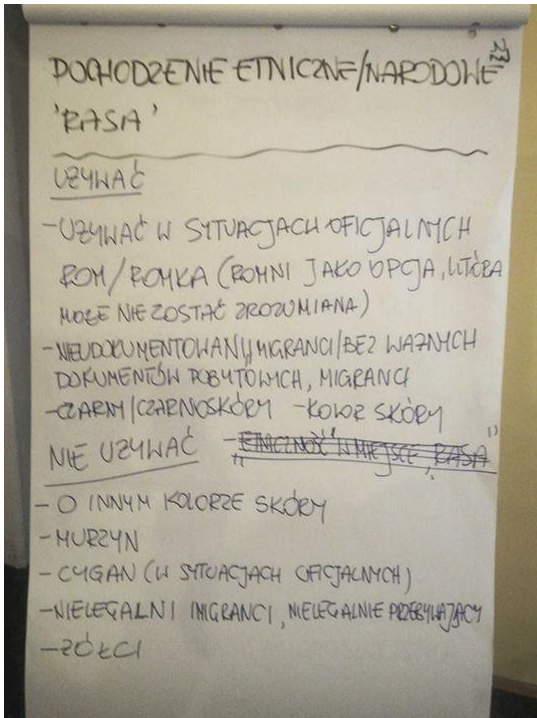 POCHODZENIE ETNICZNE/NARODOWE
'RASA'
UŻYWAĆ
- UŻYWAĆ W SYTUACJACH OFICJALNYCH
ROM/ROMKA (ROMNI JAKO OPCJA, KTÓRA
MOŻE NIE ZOSTAĆ ZROZUMIANA)
- NIEUDOKUMENTOWANI MIGRANCI/BEZ WAŻNYCH
DOKUMENTÓW POBYTOWYCH, MIGRANCI
- CZARNY/CZARNOSKÓRY - KOLOR SKÓRY
NIE UŻYWAĆ - "ETNICZNOŚĆ" W MIEJSCE "RASA"
- O INNYM KOLORZE SKÓRY
- MURZYN
- CYGAN (W SYTUACJACH OFICJALNYCH)
- NIELEGALNI IMIGRANCI, NIELEGALNIE PRZEBYWAJĄCY
- ŻÓŁCI